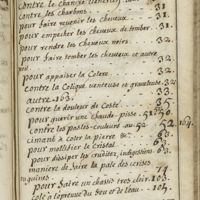 contre le chancre
contre les charbons. 31.
pour faire revenir les cheveux. 31.
pour empecher les cheveux de tomber.
pour rendre les cheveux noirs. 32.
pour faire tomber les cheveux et autre
poil. 32.
pour appaiser la Colere. 32.
contre la Colique venteuse et graveleuse. 33.
autre. 163.
contre la douleur de Costé. 35.
pour guarir une chaude-pisse. 51. 56
contre les pasles-couleurs au. 52. 52. 164.
ciment à coler la pierre &c. 63.
pour mollifier le Cristal. 63.
pour dissiper les crudités, indigestions
maniere de faire la pate des cerises
pour faire un chassis tres clair. 103.
colé à l'epreuve du feu et de l'eau. 104.